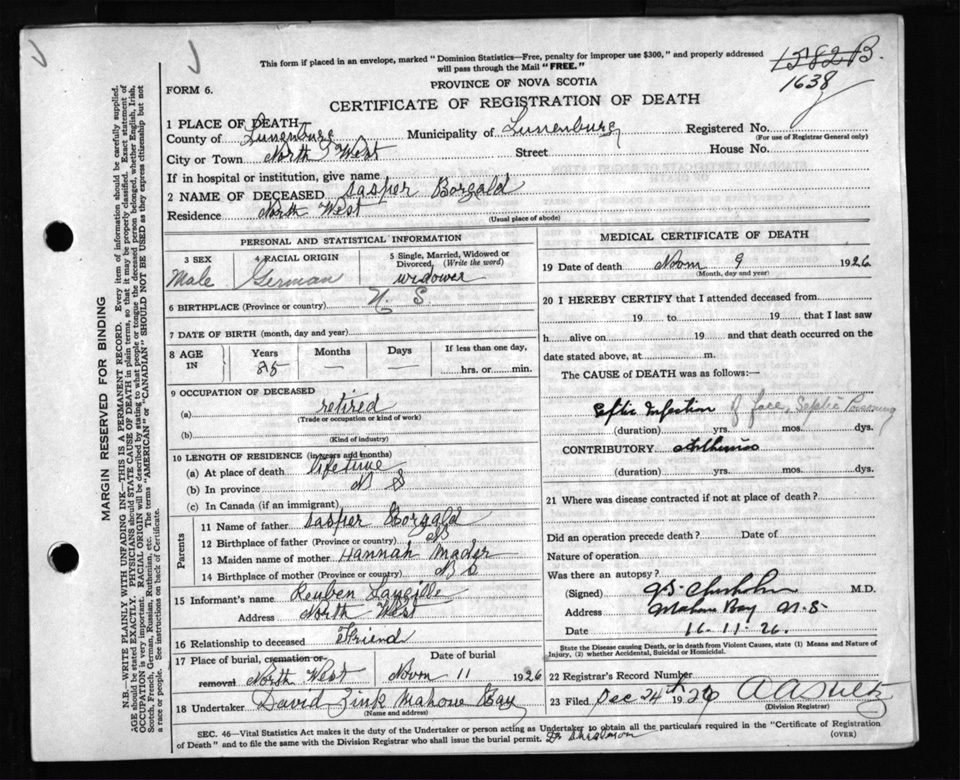 This form if placed in an envelope, marked "Dominion Statistics—Free, penalty for improper use $300," and properly addressed
will pass through the Mail "FREE."
1582 B.
1638
FORM 6.
PROVINCE OF NOVA SCOTIA
CERTIFICATE OF REGISTRATION OF DEATH
1 PLACE OF DEATH
County of Lunenburg Municipality of Lunenburg Registered No.
(For use of Registrar General only)
City or Town North West Street House No.
If in hospital or institution, give name
2 NAME OF DECEASED Casper Borgald
Residence North West
(Usual place of abode)
PERSONAL AND STATISTICAL INFORMATION
3 SEX 4 RACIAL ORIGIN 5 Single, Married, Widowed or Divorced, (Write the word)
Male German widower
6 BIRTHPLACE (Province or country) N. S
7 DATE OF BIRTH (month, day and year)
8 AGE IN Years Months Days If less than one day,
85 — — hrs. or min.
9 OCCUPATION OF DECEASED
(a) retired
(Trade or occupation or kind of work)
(b)
(Kind of industry)
10 LENGTH OF RESIDENCE (in years and months)
(a) At place of death life time
(b) In province N S
(c) In Canada (if an immigrant)
Parents
11 Name of father Casper Borgald
12 Birthplace of father (Province or country) N S
13 Maiden name of mother Hannah Mader
14 Birthplace of mother (Province or country) N S
15 Informant's name Reuben Langille
Address North West
16 Relationship to deceased Friend
17 Place of burial, cremation or removal Date of burial
North West Novm 11 1926
18 Undertaker David Zink Mahone Bay
(Name and address)
MEDICAL CERTIFICATE OF DEATH
19 Date of death Novm 9 1926
(Month, day and year)
20 I HEREBY CERTIFY that I attended deceased from
19 to 19 that I last saw
h alive on 19 and that death occurred on the
date stated above, at m.
The CAUSE of DEATH was as follows:—
Septic Infection of face, Septic Poisoning
(duration) yrs. mos. dys.
CONTRIBUTORY
(duration) yrs. mos. dys.
21 Where was disease contracted if not at place of death?
Did an operation precede death? Date of
Nature of operation
Was there an autopsy?
(Signed) Chisholm M.D.
Address Mahone Bay N.S
Date 16-11-26.
State the Disease causing Death, or in death from Violent Causes, state (1) Means and Nature of
Injury, (2) whether Accidental, Suicidal or Homicidal.
22 Registrar's Record Number
23 Filed Dec 24th 1926
(Division Registrar)
SEC. 46—Vital Statistics Act makes it the duty of the Undertaker or person acting as Undertaker to obtain all the particulars required in the "Certificate of Registration
of Death" and to file the same with the Division Registrar who shall issue the burial permit.
(OVER)
MARGIN RESERVED FOR BINDING
N.B.—WRITE PLAINLY, WITH UNFADING INK—THIS IS A PERMANENT RECORD. Every item of information should be carefully supplied.
AGE should be stated EXACTLY. PHYSICIANS should STATE CAUSE OF DEATH in plain terms, so that it may be properly classified. Exact statement of
OCCUPATION is very important. RACIAL ORIGIN will be described by stating to what people or tongue the deceased person belonged, whether English, Irish,
Scotch, French, German, Russian, Ruthenian, etc. The terms "AMERICAN" or "CANADIAN" SHOULD NOT BE USED as they express citizenship but not
a race or people. See instructions on back of Certificate.